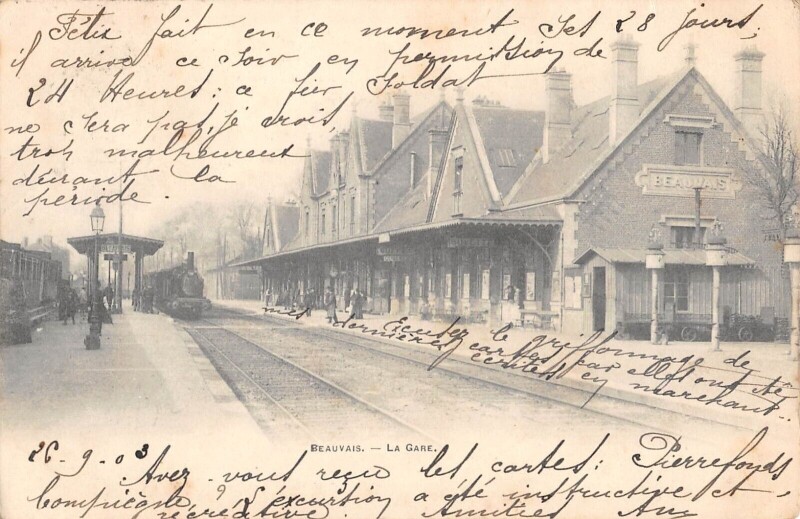 Félix fait en ce moment Ses 28 jours;
il arrive ce soir en permission de
24 Heures: ce fier Soldat
ne sera pas, je crois,
très malheureux
durant la
période.
BEAUVAIS
Excuser le griffonnage de
mes dernières cartes car elles ont été
écrites en marchant.
BEAUVAIS. — LA GARE.
26-9-03 Avez-vous reçu les cartes: Pierrefonds
Compiègne, L'éxcurtion a été instructive et
récréative. Amitiés